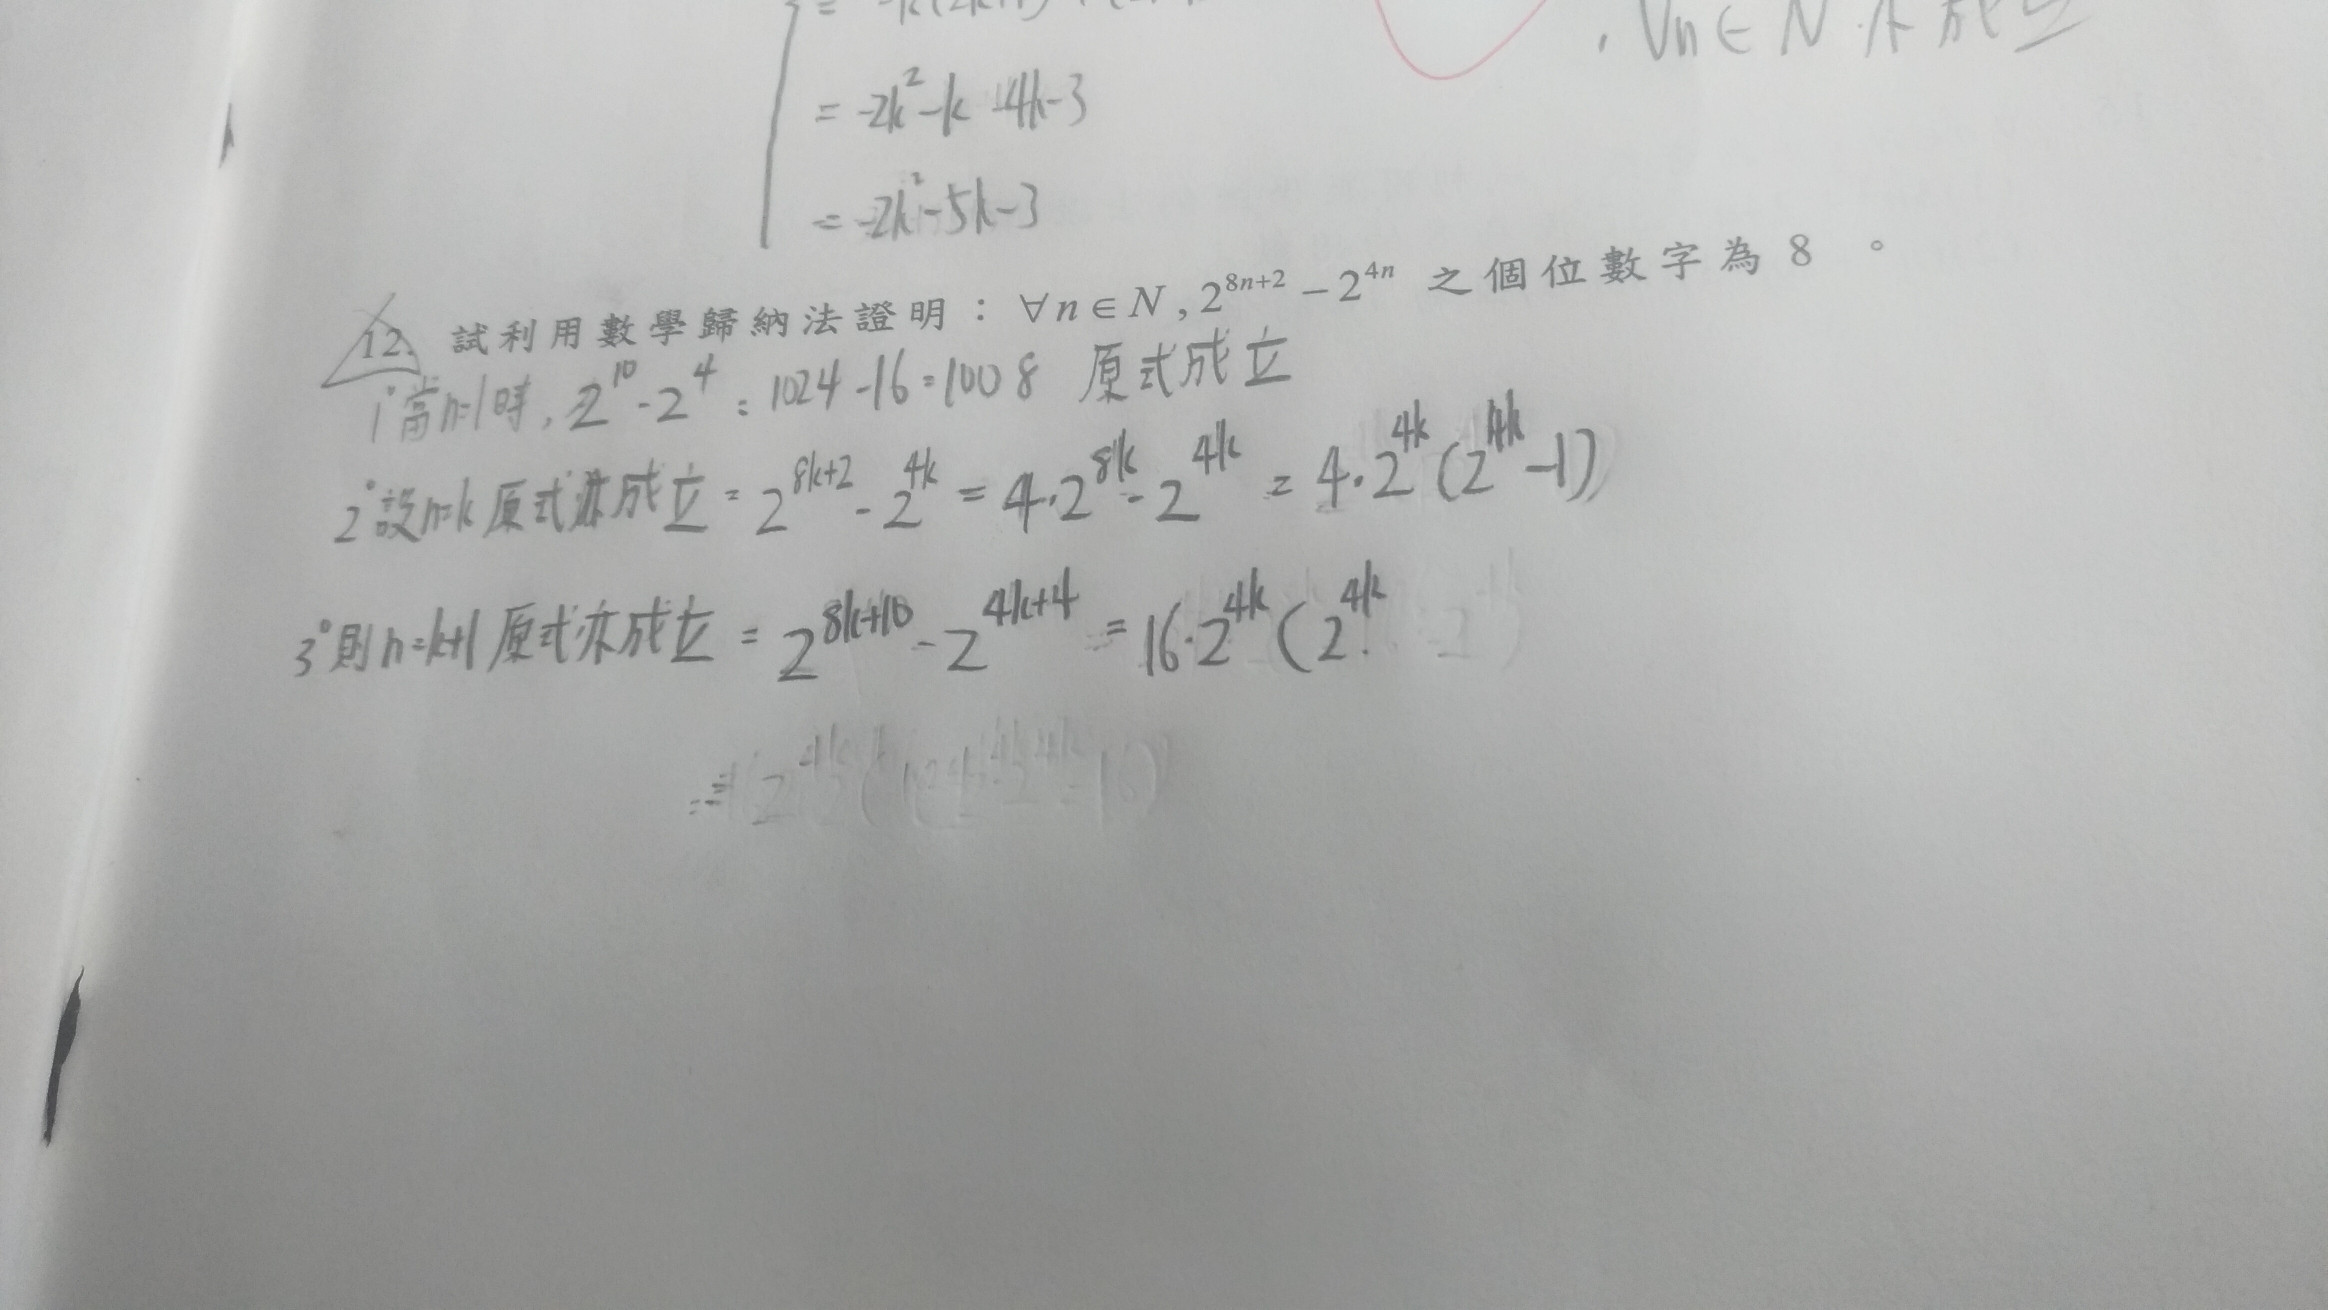 , ∀n∈N 亦成立
= -2k² -k -4k-3
= -2k²-5k-3
12. 試利用數學歸納法證明：∀n∈N , 2^{8n+2} − 2^{4n} 之個位數字為 8 。
1° 當n=1時, 2^{10} - 2^{4} = 1024-16=1008 原式成立
2° 設n=k 原式亦成立 = 2^{8k+2} - 2^{4k} = 4·2^{8k} - 2^{4k} = 4·2^{4k}(2^{4k}-1)
3° 則n=k+1 原式亦成立 = 2^{8k+10} - 2^{4k+4} = 16·2^{4k}(2^{4k}·